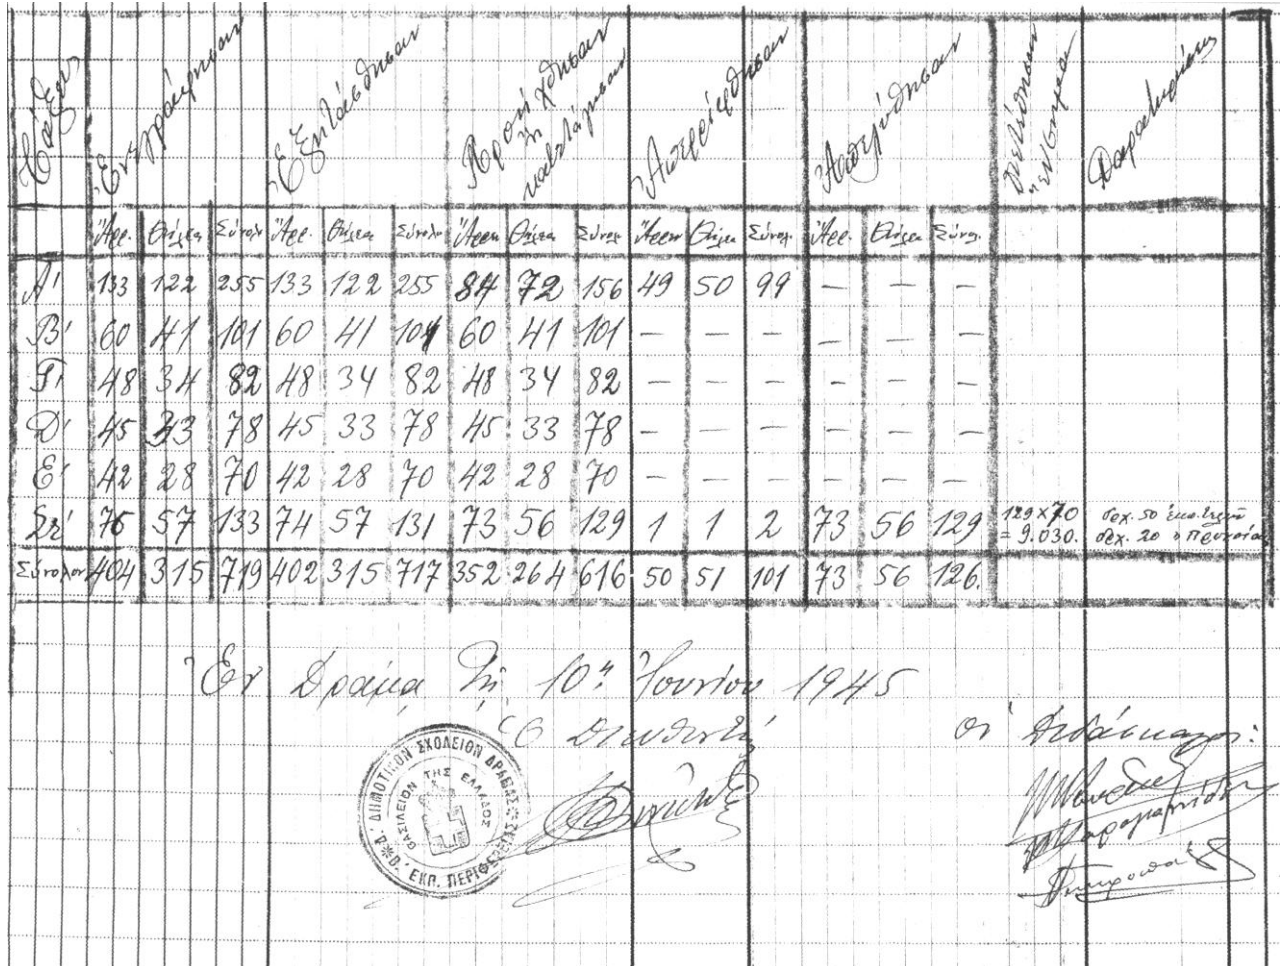 Τάξεις Ἐνεγράφησαν Ἐξητάσθησαν Προήχθησαν ἢ κατετάγησαν Ἀπερρίφθησαν Ἀπελύθησαν Παρατηρήσεις
Ἄρρ. Θήλεα Σύνολον Ἄρρ. Θήλεα Σύνολον Ἄρρεν Θήλεα Σύνολ. Ἄρρεν Θήλεα Σύνολ. Ἄρρ. Θήλεα Σύνολ.
Α' 133 122 255 133 122 255 84 72 156 49 50 99 — — —
Β' 60 41 101 60 41 101 60 41 101 — — — — — —
Γ' 48 34 82 48 34 82 48 34 82 — — — — — —
Δ' 45 33 78 45 33 78 45 33 78 — — — — — —
Ε' 42 28 70 42 28 70 42 28 70 — — — — — —
Στ' 76 57 133 74 57 131 73 56 129 1 1 2 73 56 129 129 x 70 δρχ. 50
= 9.030. δρχ. 20
Σύνολον 404 315 719 402 315 717 352 264 616 50 51 101 73 56 126.
Ἐν Δράμᾳ τῇ 10ῃ Ἰουνίου 1945
Ὁ Διευθυντής
Οἱ Διδάσκαλοι:
Δ' ΔΗΜΟΤΙΚΟΝ ΣΧΟΛΕΙΟΝ ΔΡΑΜΑΣ
ΕΚΠ. ΠΕΡΙΦΕΡΕΙΑΣ
ΒΑΣΙΛΕΙΟΝ ΤΗΣ ΕΛΛΑΔΟΣ